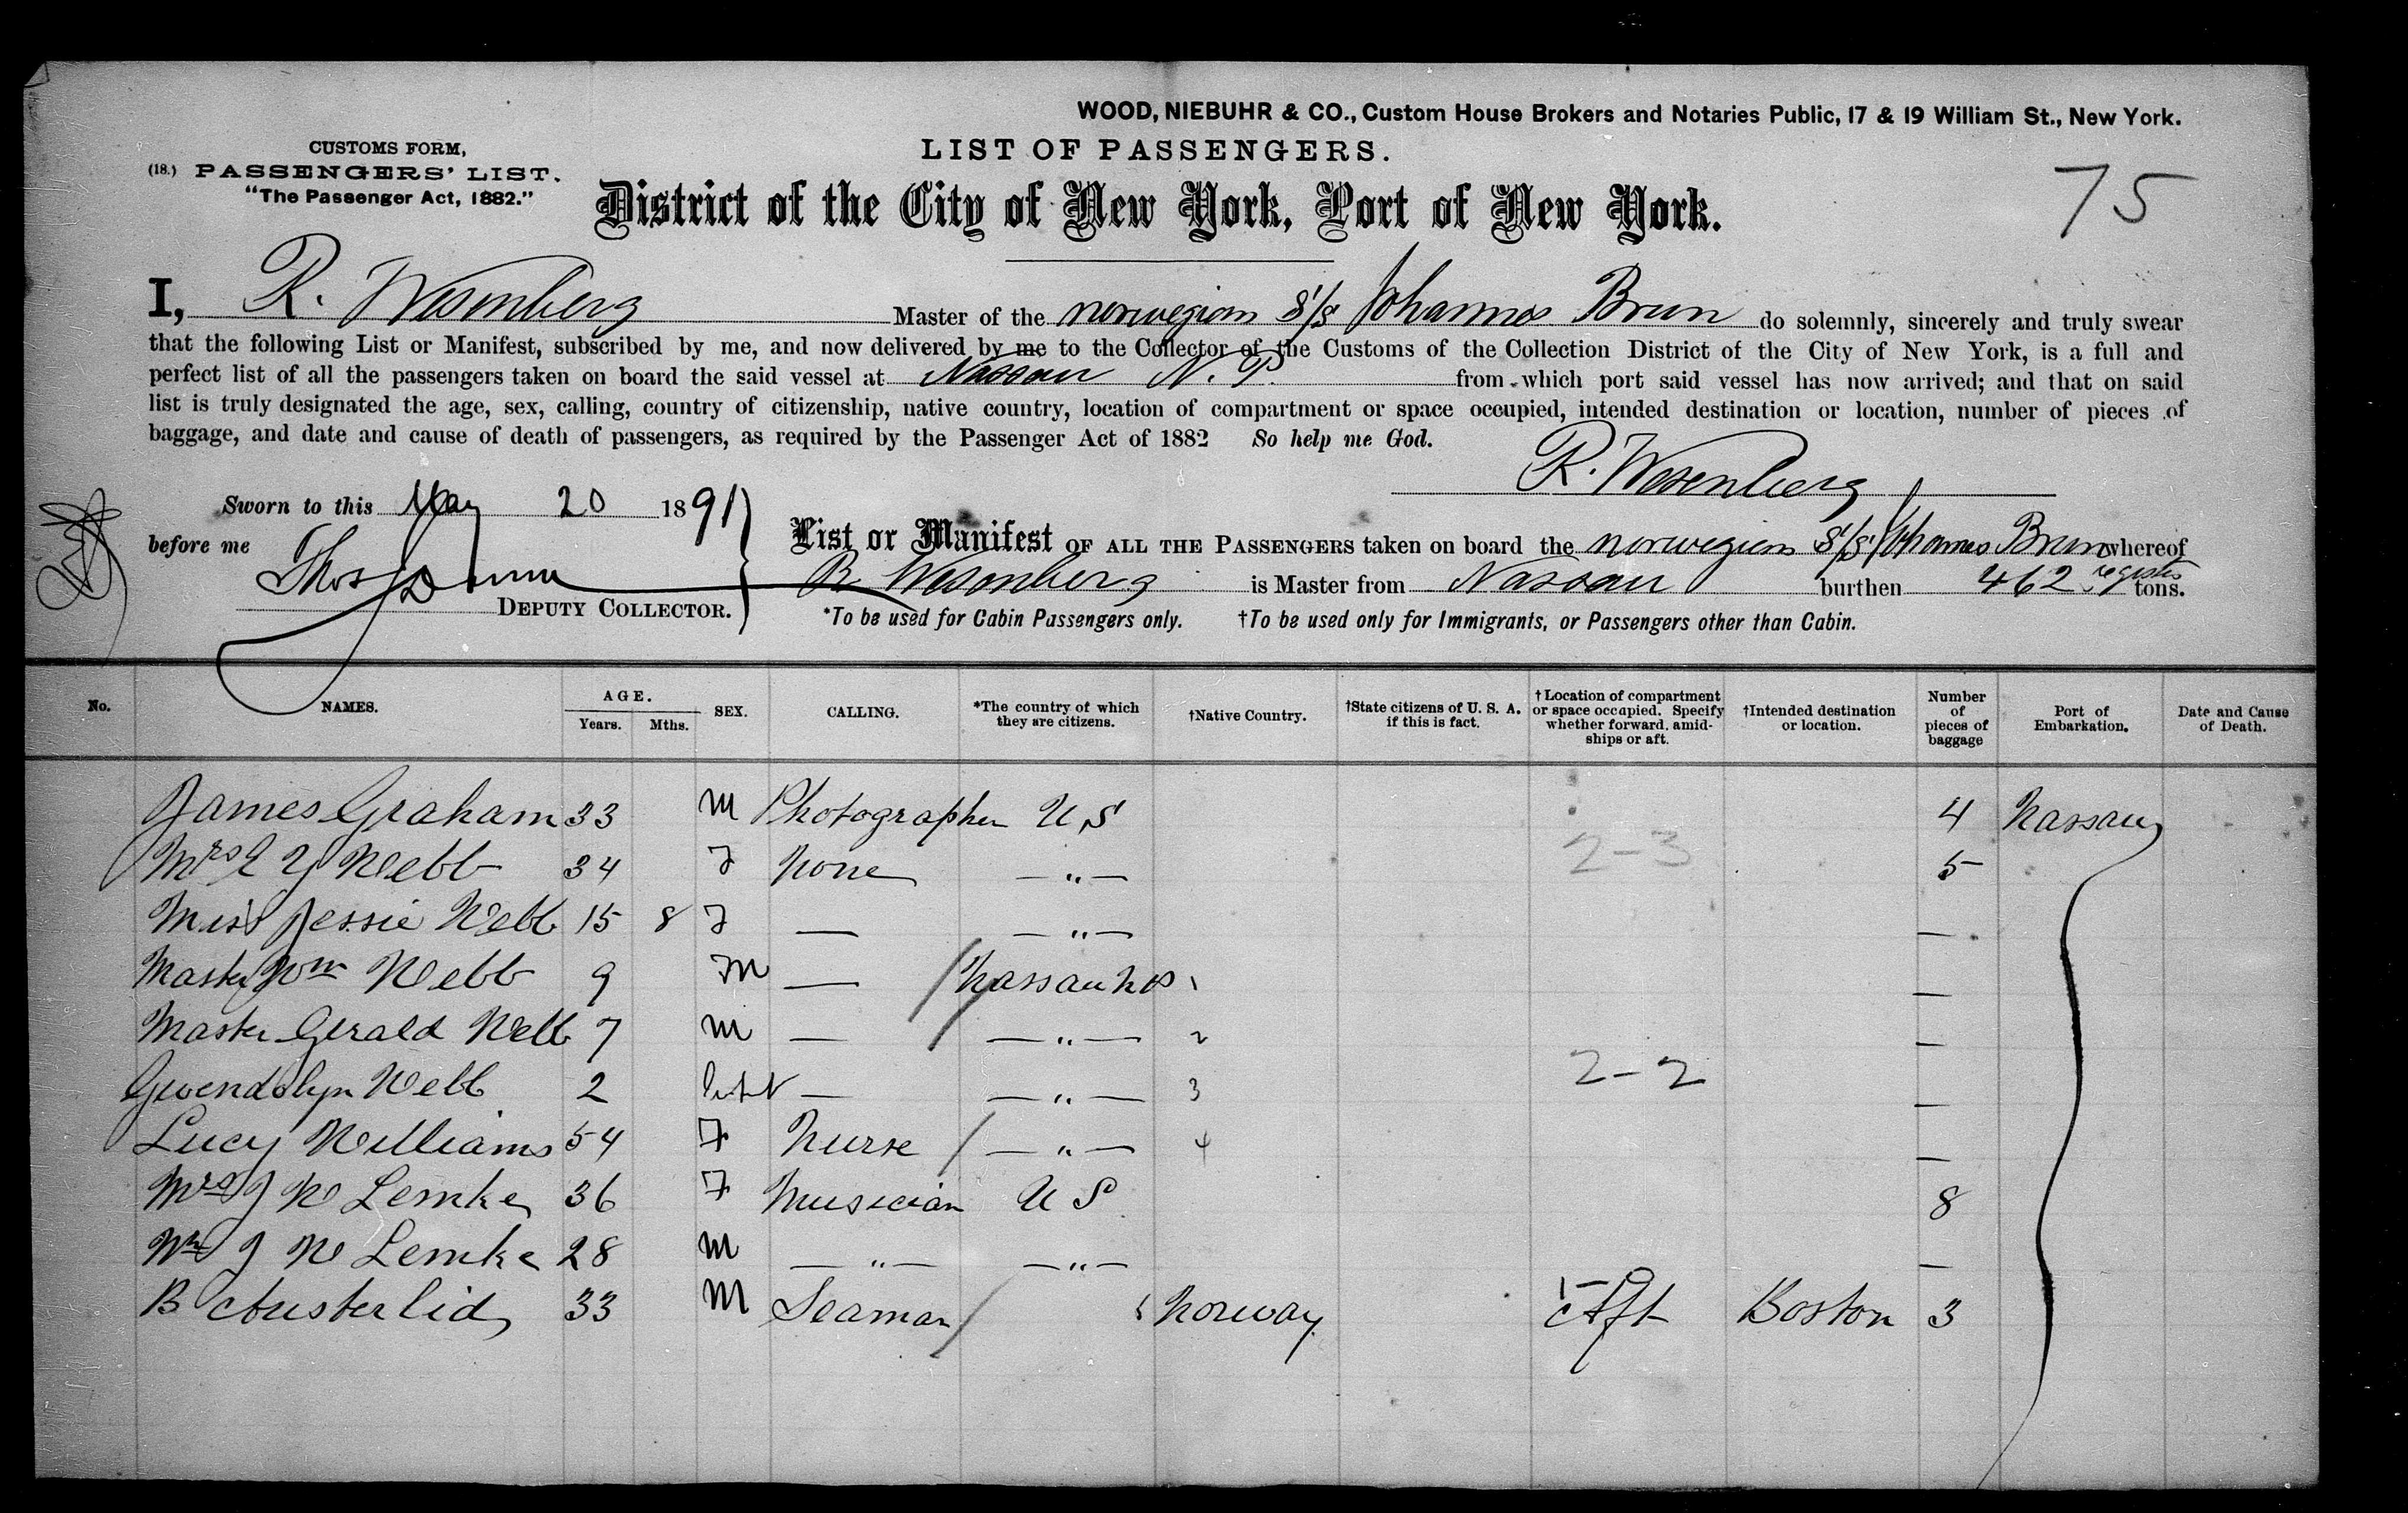 WOOD, NIEBUHR & CO., Custom House Brokers and Notaries Public, 17 & 19 William St., New York.
CUSTOMS FORM,
(18.) PASSENGERS' LIST.
"The Passenger Act, 1882."
LIST OF PASSENGERS.
75
District of the City of New York, Port of New York.
I, R. Wesenberg Master of the norwegian S/S Johannes Brun do solemnly, sincerely and truly swear
that the following List or Manifest, subscribed by me, and now delivered by me to the Collector of the Customs of the Collection District of the City of New York, is a full and
perfect list of all the passengers taken on board the said vessel at Nassau N. P. from which port said vessel has now arrived; and that on said
list is truly designated the age, sex, calling, country of citizenship, native country, location of compartment or space occupied, intended destination or location, number of pieces of
baggage, and date and cause of death of passengers, as required by the Passenger Act of 1882 So help me God.
R. Wesenberg
Sworn to this May 20 1891
before me
Thos
DEPUTY COLLECTOR.
List or Manifest OF ALL THE PASSENGERS taken on board the norwegian S/S Johannes Brun whereof
R Wesenberg is Master from Nassau burthen 462 register tons.
*To be used for Cabin Passengers only. †To be used only for Immigrants, or Passengers other than Cabin.
No. NAMES. AGE. Years. Mths. SEX. CALLING. *The country of which they are citizens. †Native Country. †State citizens of U. S. A. if this is fact. †Location of compartment or space occupied. Specify whether forward, amidships or aft. †Intended destination or location. Number of pieces of baggage Port of Embarkation. Date and Cause of Death.
James Graham 33 M Photographer U S 4 Nassau
Mrs E Y Webb 34 F None — " — 2-3 5
Miss Jessie Webb 15 8 F — — " — —
Master Wm Webb 9 M — / Nassau N P 1 —
Master Gerald Webb 7 M — / — " — 2 —
Gwendolyn Webb 2 — — " — 3 2-2 —
Lucy Williams 54 F Nurse / — " — 4 —
Mrs J W Lemke 36 F Musician U S 8
Wm J W Lemke 28 M — " — — " — —
B Austerlid 33 M Seaman / Norway Aft Boston 3